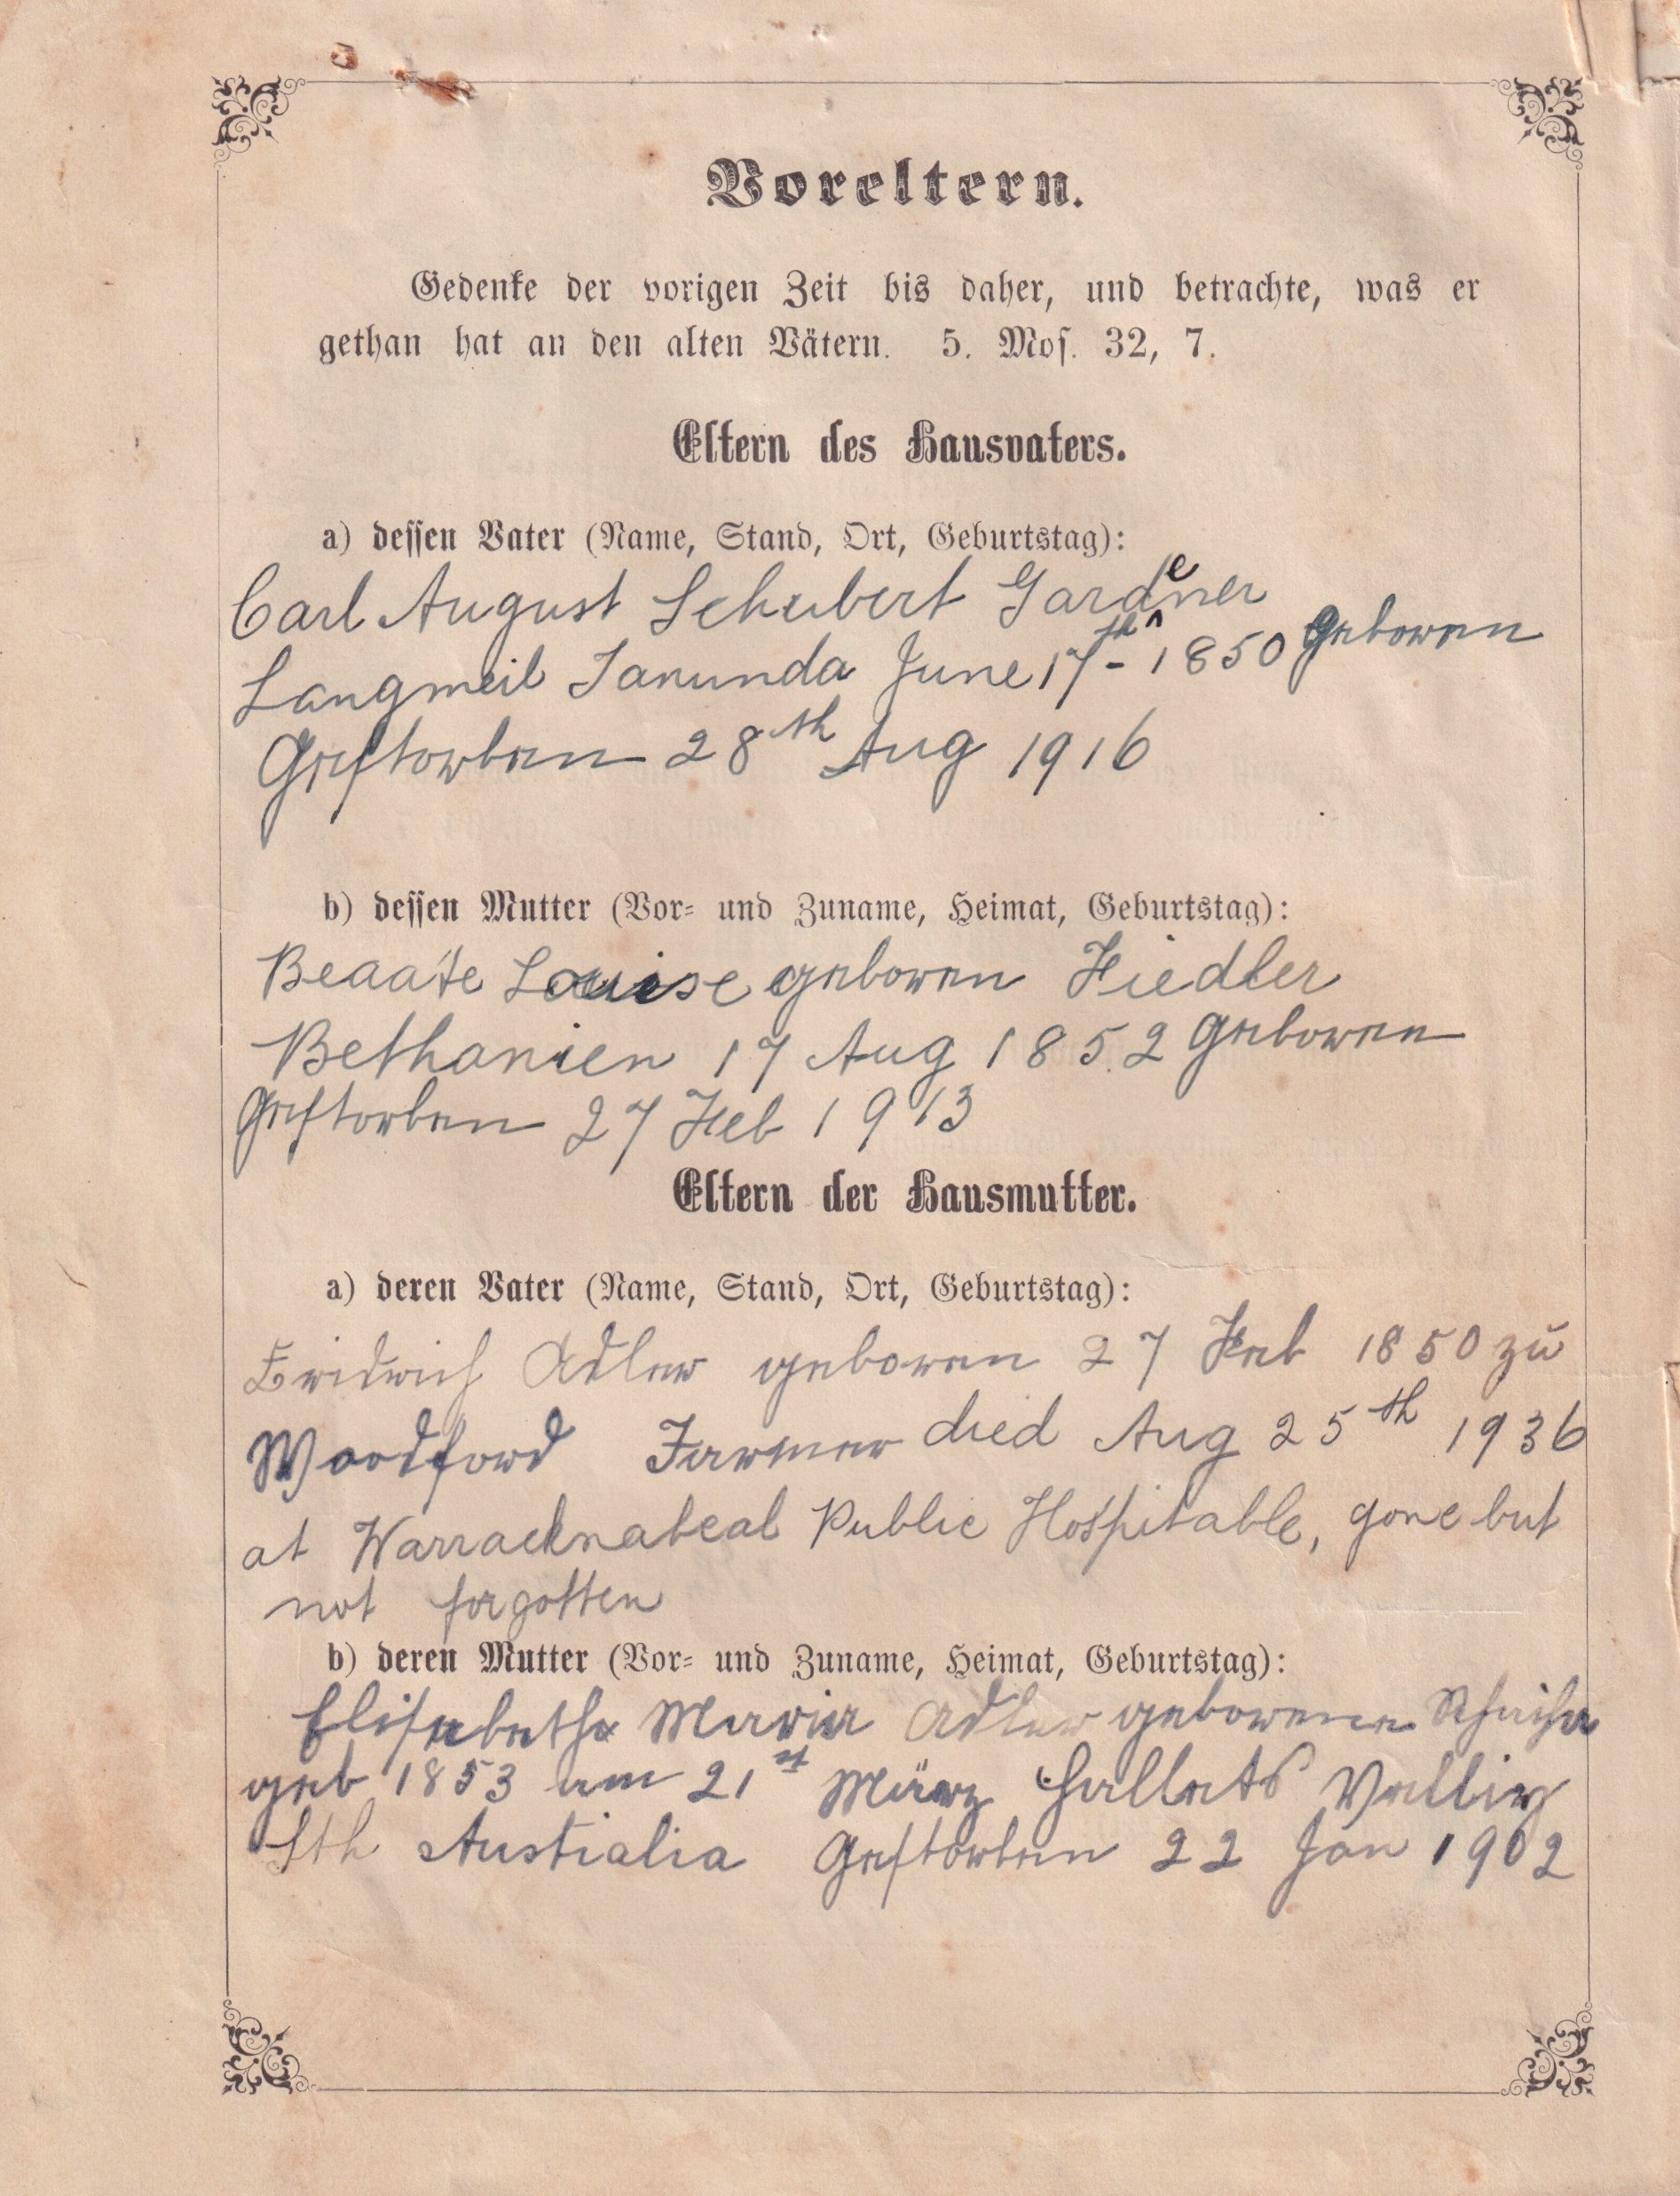 Voreltern.
Gedenke der vorigen Zeit bis daher, und betrachte, was er
gethan hat an den alten Vätern. 5. Mos. 32, 7.
Eltern des Hausvaters.
a) dessen Vater (Name, Stand, Ort, Geburtstag):
Carl August Schubert Gardener
Langmeil Tanunda June 17th 1850 Geboren
Gestorben 28th Aug 1916
b) dessen Mutter (Vor- und Zuname, Heimat, Geburtstag):
Beaate Louise geboren Fiedler
Bethanien 17 Aug 1852 Geboren
Gestorben 27 Feb 1913
Eltern der Hausmutter.
a) deren Vater (Name, Stand, Ort, Geburtstag):
Fridrich Adler geboren 27 Feb 1850 zu
Woodford Farmer died Aug 25th 1936
at Warracknabeal Public Hospitable, gone but
not forgotten
b) deren Mutter (Vor- und Zuname, Heimat, Geburtstag):
Elisabetha Maria Adler geborene
geb 1853 am 21st März Hallets Valley
Sth Australia Gestorben 22 Jan 1902